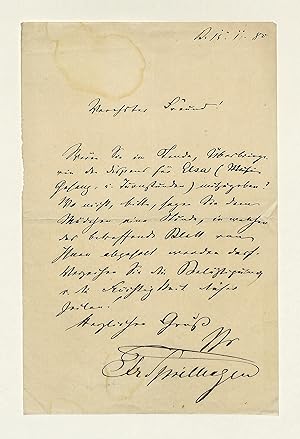 B. 15. II. 80
Verehrter Freund!
Wären Sie im Stande, Überbringerin
die Dispens für Elsa (
Gesang- u. Turnstunden) mitzugeben?
Wo nicht, bitte, sagen Sie dem
Mädchen eine Stunde, in welcher
das betreffende Blatt von
Ihnen abgeholt werden darf.
Verzeihen Sie die Belästigung
u. die Flüchtigkeit dieser
Zeilen!
Herzlichen Gruß
Ihr
Fr Spielhagen